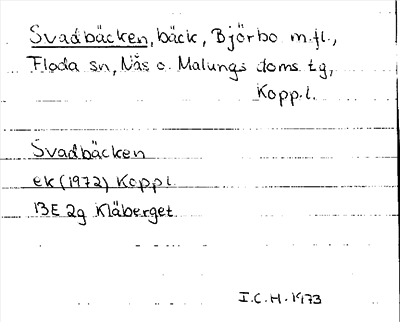 Svadbäcken, bäck, Björbo m.fl.,
Floda sn, Nås o. Malungs doms. tg,
Kopp. l.
Svadbäcken
ek (1972) Kopp l
13E 2g Kläberget
I.C.H. 1973